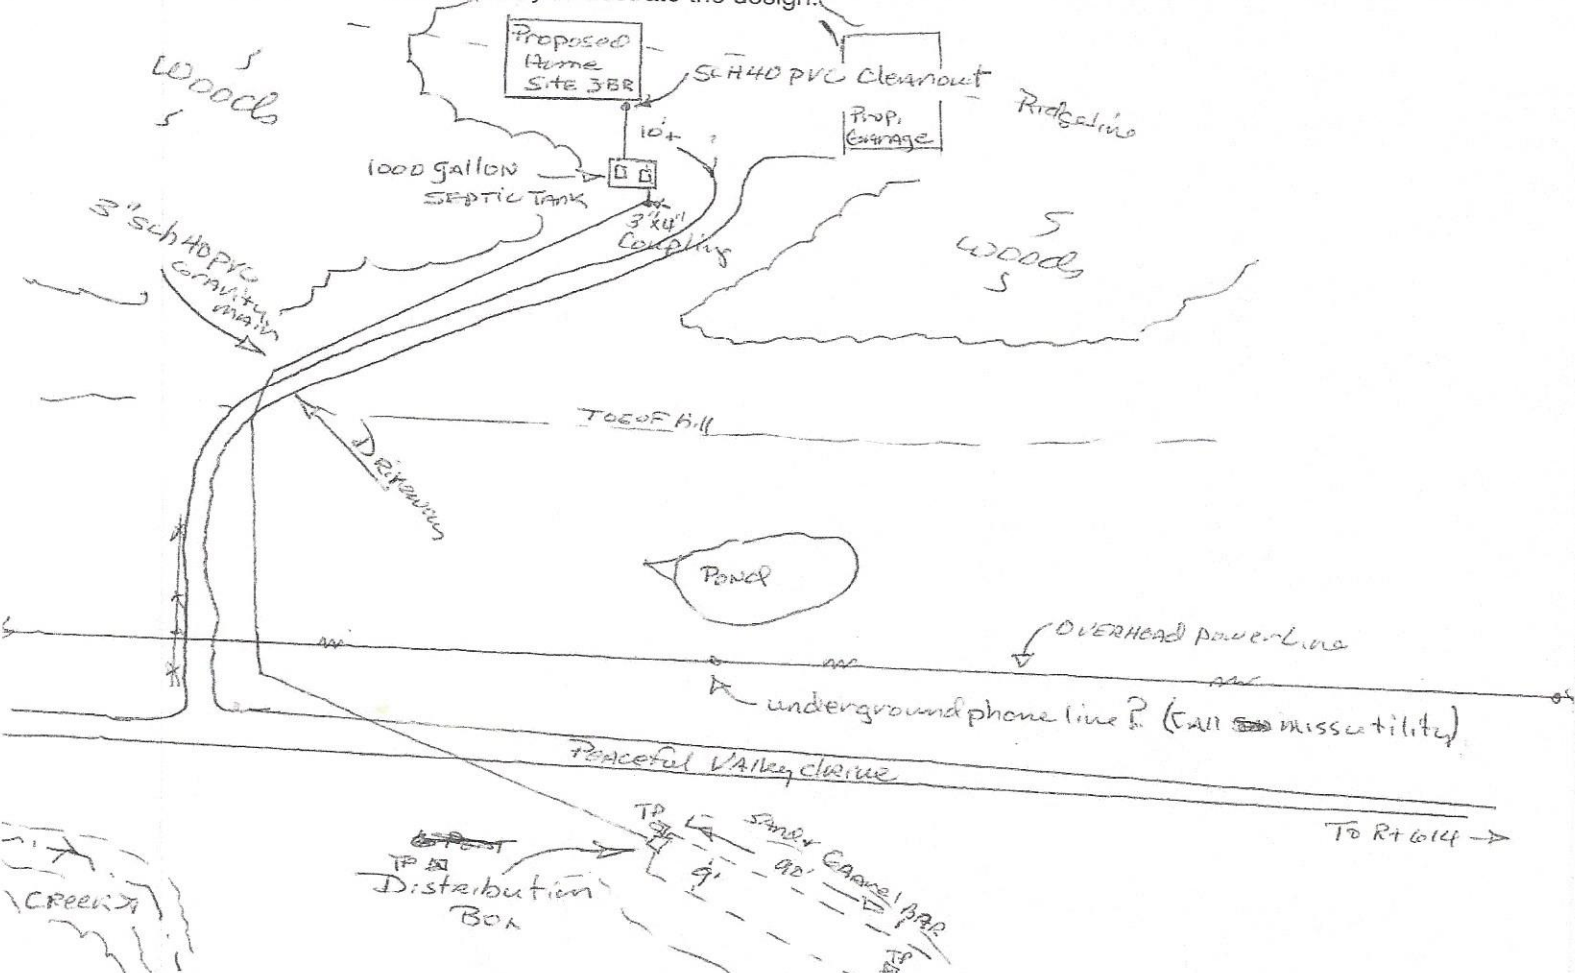 the design.
Proposed
Home
Site 3BR
SCH40 PVC Cleanout
Prop.
Garage
Ridgeline
Woods
10'+
1000 gallon
Septic Tank
3"x4"
Coupling
3" Sch 40 PVC
Gravity
main
Woods
Toe of hill
Driveway
Pond
Overhead powerline
underground phone line? (Call missutility)
Peaceful Valley drive
To Rt 614
TP
Sand & Gravel Bar
90'
9'
TP
Distribution
Box
Creek
TP